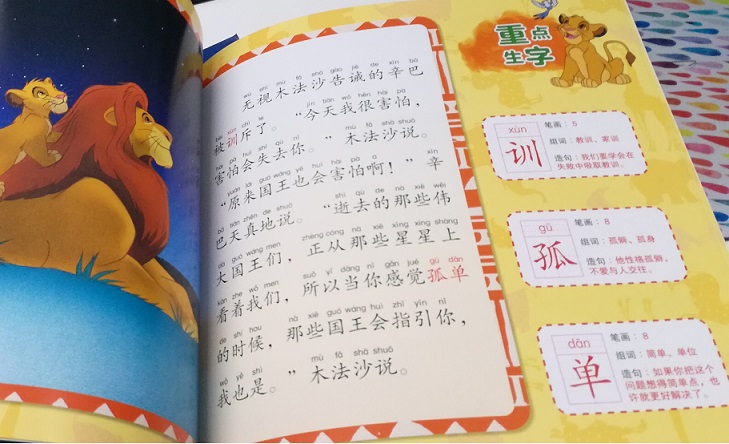 wú shì mù fǎ shā gào jiè de xīn bā
无视木法沙告诫的辛巴
bèi xùn chì le jīn tiān wǒ hěn hài pà
被训斥了。“今天我很害怕，
hài pà huì shī qù nǐ mù fǎ shā shuō
害怕会失去你。”木法沙说。
yuán lái guó wáng yě huì hài pà a xīn
“原来国王也会害怕啊！”辛
bā tiān zhēn de shuō shì qù de nà xiē wěi
巴天真地说。“逝去的那些伟
dà guó wáng men zhèng cóng nà xiē xīng xīng shàng
大国王们，正从那些星星上
kàn zhe wǒ men suǒ yǐ dāng nǐ gǎn jué gū dān
看着我们，所以当你感觉孤单
de shí hou nà xiē guó wáng huì zhǐ yǐn nǐ
的时候，那些国王会指引你，
wǒ yě shì mù fǎ shā shuō
我也是。”木法沙说。
重点
生字
xùn
训
笔画：5
组词：教训、家训
造句：我们要学会在
失败中吸取教训。
gū
孤
笔画：8
组词：孤躺、孤身
造句：他性格孤躺，
不爱与人交往。
dān
单
笔画：8
组词：简单、单位
造句：如果你把这个
问题想得简单点，也
许就更好解决了。